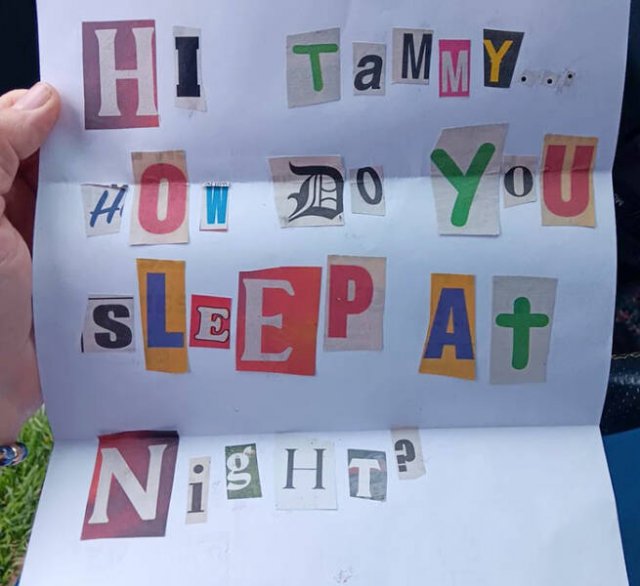 HI TaMMY...
HOW DO YOU
SLEEP At
NigHT?